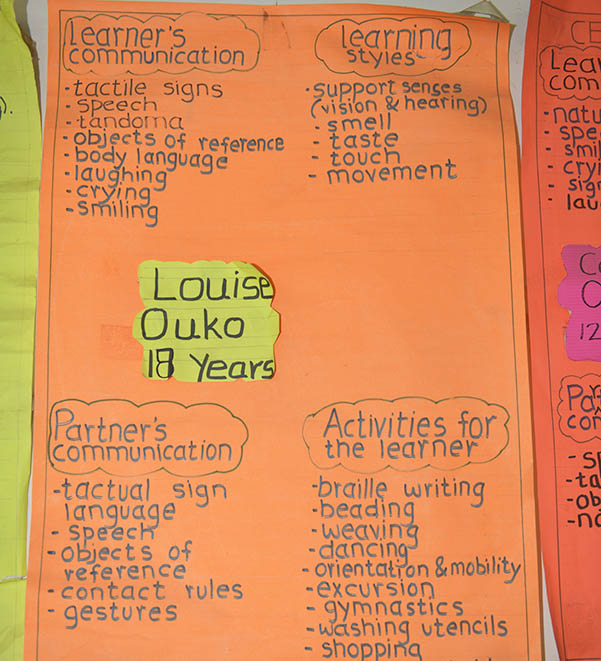 Learner's
communication
- tactile signs
- speech
- tandoma
- objects of reference
- body language
- laughing
- crying
- smiling
learning
styles
- support senses
(vision & hearing)
- smell
- taste
- touch
- movement
Louise
Ouko
18 Years
Partner's
communication
- tactual sign
language
- speech
- objects of
reference
- contact rules
- gestures
Activities for
the learner
- braille writing
- beading
- weaving
- dancing
- orientation & mobility
- excursion
- gymnastics
- washing utencils
- shopping
CE
Lear
com
- natu
- spe
- smi
- cryi
- sig
- lau
C
O
12
Pa
con
- sp
- ta
- ob